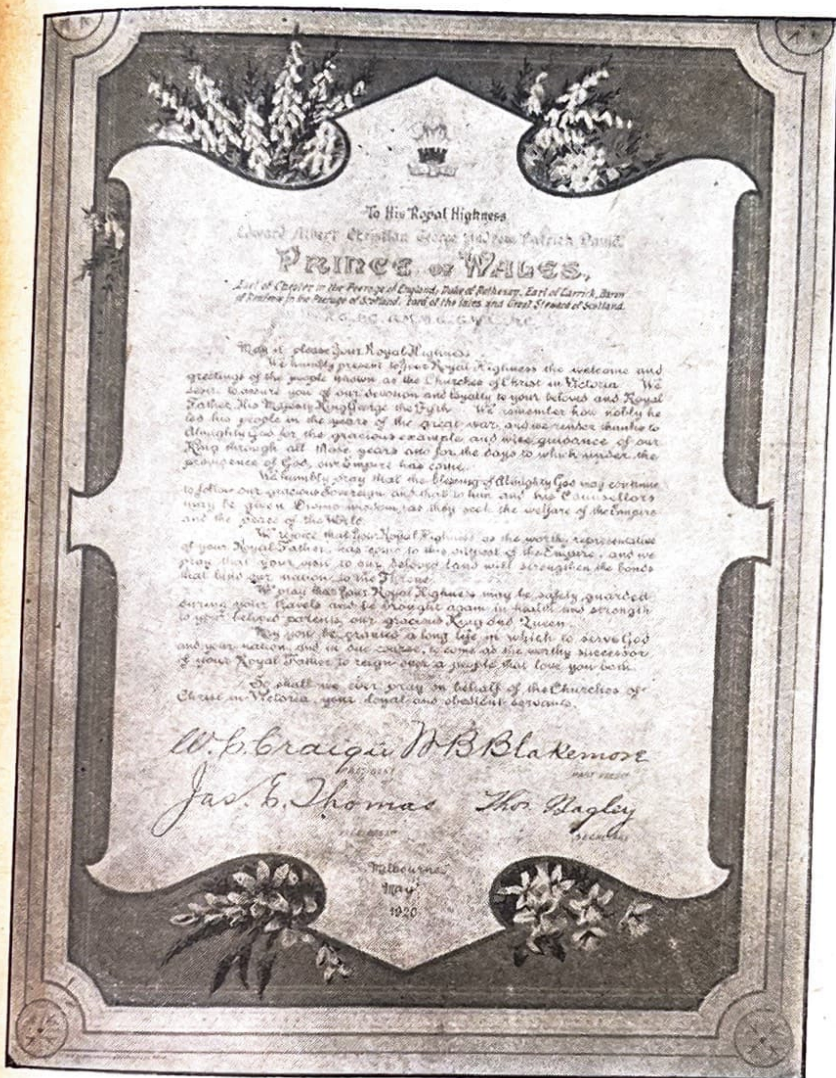 To His Royal Highness
Edward Albert Christian George Andrew Patrick David
PRINCE OF WALES,
Earl of Chester in the Peerage of England, Duke of Rothesay, Earl of Carrick, Baron
of Renfrew in the Peerage of Scotland, Lord of the Isles and Great Steward of Scotland.
May it please Your Royal Highness
We humbly present to Your Royal Highness the welcome and
greetings of the people known as the Churches of Christ in Victoria. We
desire to assure you of our devotion and loyalty to your beloved and Royal
Father, His Majesty King George the Fifth. We remember how nobly he
led his people in the years of the great war, and we render thanks to
Almighty God for the gracious example and wise guidance of our
King through all those years and for the days to which under the
providence of God, our Empire has come.
We humbly pray that the blessing of Almighty God may continue
to follow our gracious Sovereign and that to him and his Counsellors
may be given Divine wisdom, as they seek the welfare of the Empire
and the peace of the World.
We rejoice that Your Royal Highness as the worthy representative
of your Royal Father, has come to this outpost of the Empire, and we
pray that your visit to our beloved land will strengthen the bonds
that bind our nation to the Throne.
We pray that Your Royal Highness may be safely guarded
during your travels and be brought again in health and strength
to your beloved parents, our gracious King and Queen.
May you be granted a long life in which to serve God
and your nation, and in due course, to come as the worthy successor
of your Royal Father to reign over a people that love you both.
So shall we ever pray on behalf of the Churches of
Christ in Victoria, your loyal and obedient servants.
W. C. Craigie W B Blakemore
PRESIDENT
Jas. E. Thomas Thos. Hagley
SECRETARY
Melbourne,
May
1920